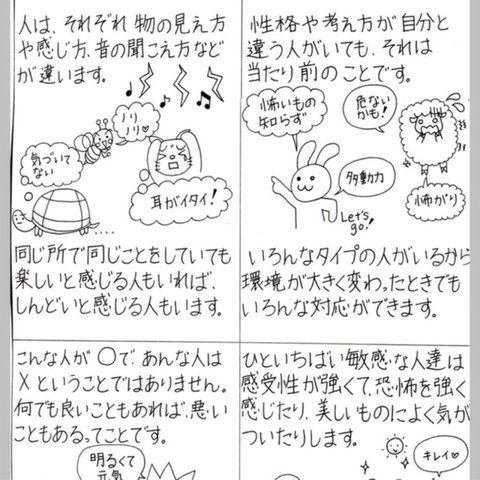 人は、それぞれ物の見え方
や感じ方、音の聞こえ方など
が違います。
ノリ
ノリ♡
気づいて
ない
耳がイタイ!
同じ所で同じことをしていても
楽しいと感じる人もいれば、
しんどいと感じる人もいます。
性格や考え方が自分と
違う人がいても、それは
当たり前のことです。
怖いもの
知らず
危ない
かも!
多動力
Let's
go!
怖がり
いろんなタイプの人がいるから
環境が大きく変わったときでも
いろんな対応ができます。
こんな人が〇で、あんな人は
Xということではありません。
何でも良いこともあれば、悪い
こともあるってことです。
明るくて
元気
ひといちばい敏感な人達は
感受性が強くて、恐怖を強く
感じたり、美しいものによく気が
ついたりします。
キレイ♡